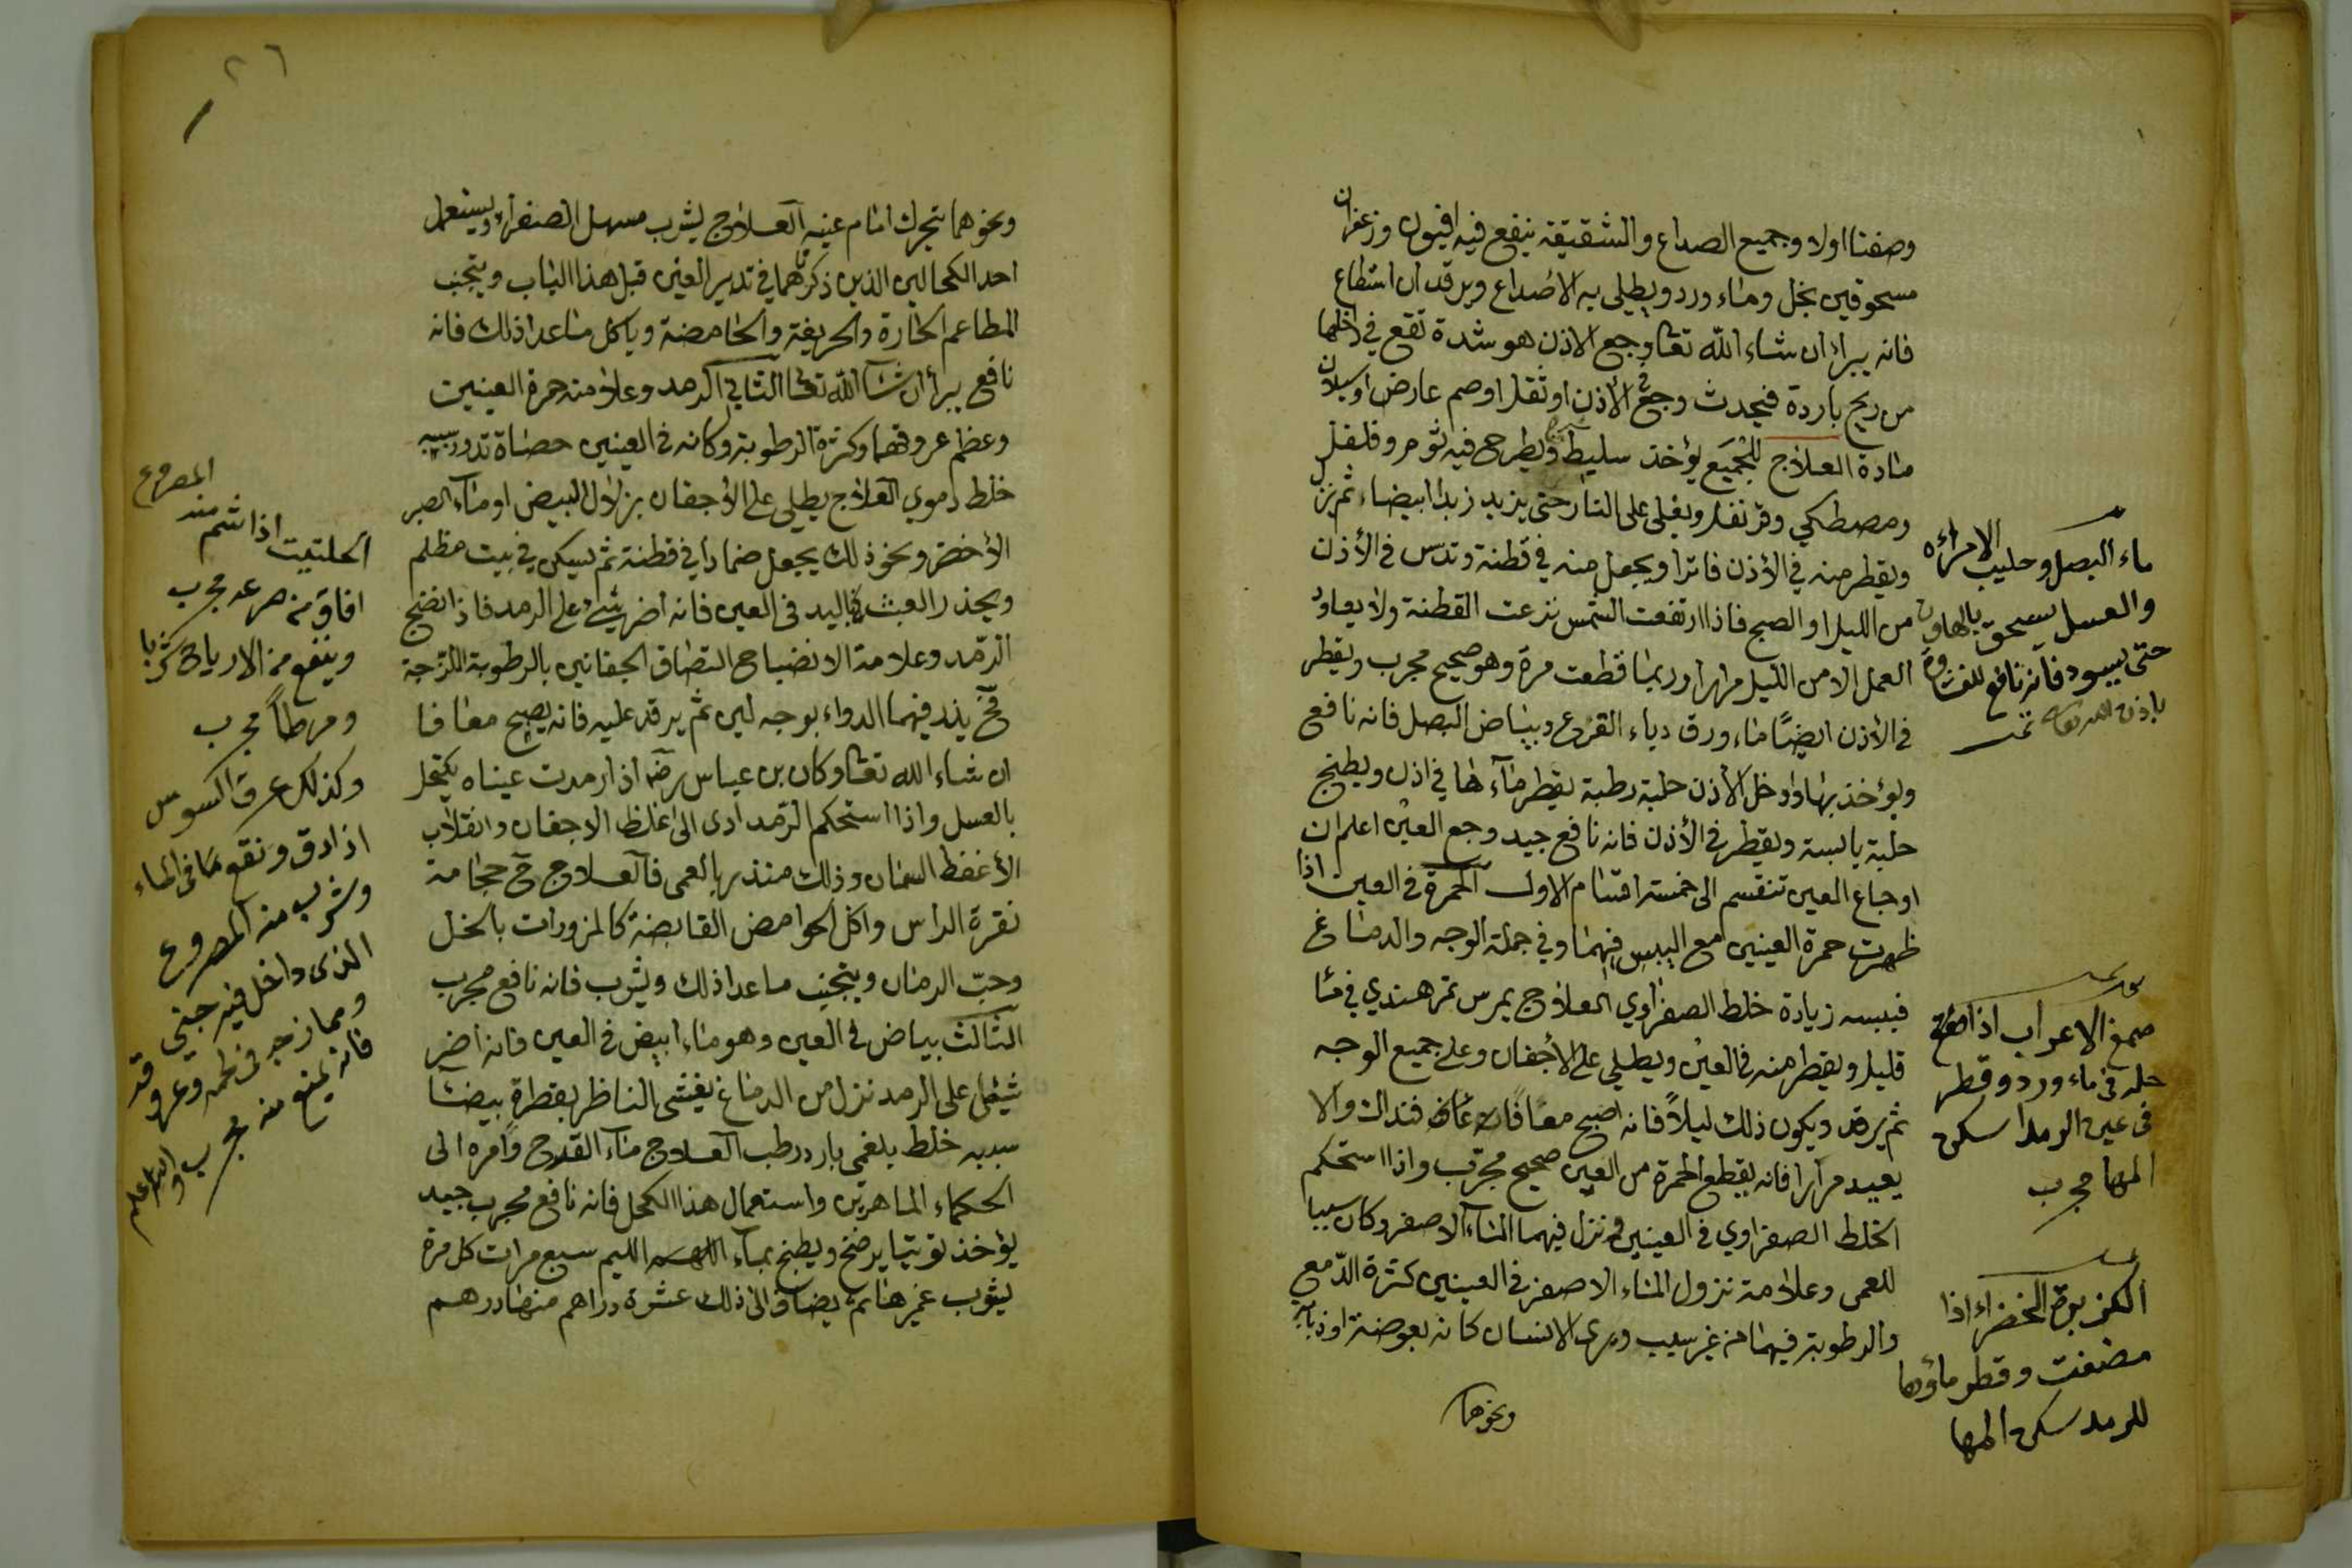 وصفنا اولا وجميع الصداع والشقيقة ينفع فيه افيون وزعفران
مسحوقين بخل وماء ورد ويطلى به الاصداغ ويرقد ان استطاع
فانه يبرا ان شاء الله تعا وجع الاذن هو شدة تقع في داخلها
من ريح باردة فيحدث وجع في الأذن او ثقل او صم عارض او سيلان
مادة العلاج للجميع يؤخذ سليط ويطرح فيه ثوم وفلفل
ومصطكي وقرنفل ويغلى على النار حتى يزبد زبدا ابيضا ثم ينزل
ويقطر منه في الأذن فاترا ويجعل منه في قطنة وتدس في الأذن
من الليل او الصبح فاذا ارتفعت الشمس نزعت القطنة ولا يعاود
العمل الا من الليل مرارا وربما قطعت مرة وهو صحيح مجرب ويقطر
في الأذن ايضًا ماء ورق دباء القرع وبياض البصل فانه نافع
ويؤخذ حلبة رطبة يقطر ماءها في اذن ويطبخ
حلبة يابسة ويقطر في الأذن فانه نافع جيد وجع العين اعلم ان
اوجاع العين تنقسم الى خمسة اقسام الاول الحمرة في العين اذا
ظهرت حمرة العينين مع اليبس فيهما وفي جملة الوجه والدماغ
فسببه زيادة خلط الصفراوي العلاج يمرس تمر هندي في ماء
قليل ويقطر منه في العين ويطلى على الأجفان وعلى جميع الوجه
ثم يرقد ويكون ذلك ليلاً فانه اصبح معافا فذاك والا
يعيد مرارا فانه يقطع الحمرة من العين صحيح مجرب واذا استحكم
الخلط الصفراوي في العينين نزل فيهما الماء الاصفر وكان سببا
للعمى وعلامة نزول الماء الاصفر في العينين كثرة الدمع
والرطوبة فيهما من غير سبب ويرى الانسان كانه بعوضة او ذبابة
ونحوهما
ماء البصل وحليب الامراءه
والعسل يسحق بالهاون
حتى يسود فانه نافع للغشاوة
باذن الله تعالى تمت
صمغ الاعراب اذا
حله في ماء ورد وقطر
في عين الرمدا سكن
المها مجرب
الكزبرة الخضراء اذا
مضغت وقطر ماؤها
للرمد سكن المها
٢٦
ونحوهما تتحرك امام عينيه العلاج يشرب مسهل الصفراء ويستعمل
احد الكحالين الذين ذكرناهما في تدبير العين قبل هذا الباب ويتجنب
المطاعم الحارة والحريفة والحامضة وياكل ما عدا ذلك فانه
نافع يبرأ ان شاء الله تعا الثاني الرمد وعلامته حمرة العينين
وعظم عروقهما وكثرة الرطوبة وكانه في العينين حصاة تدور سببه
خلط دموي العلاج يطلى على الأجفان بزلال البيض او ماء الصبر
الأخضر ونحو ذلك يجعل ضمادا في قطنة ثم يسكن في بيت مظلم
ويحذر العبث باليد في العين فانه اضر شيء على الرمد فاذا نضج
الرمد وعلامة الانضاج التصاق الجفانين بالرطوبة اللزجة
فح يذر فيهما الدواء بوجه لين ثم يرقد عليه فانه يصبح معافا
ان شاء الله تعا وكان بن عباس رضه اذا رمدت عيناه يكتحل
بالعسل واذا استحكم الرمد ادى الى اغلظ الاجفان وانقلاب
الأغفظ السمان وذلك منذر بالعمى فالعلاج ح حجامة
نقرة الراس واكل الحوامض القابضة كالمزورات بالخل
وحب الرمان ويتجنب ما عدا ذلك ويشرب فانه نافع مجرب
الثالث بياض في العين وهو ماء ابيض في العين فانه اضر
شيء على الرمد نزل من الدماغ يغشى الناظر بقطرة بيضا
سببه خلط بلغمي بارد رطب العلاج ماء القدح وامره الى
الحكماء الماهرين واستعمال هذا الكحل فانه نافع مجرب جيد
يؤخذ توتيا يرضخ ويطبخ بماء الليم سبع مرات كل مرة
يثوب غمرها ثم يضاف الى ذلك عشرة دراهم منها درهم
الحلتيت اذا شم منه المصروع
افاق من صرعه مجرب
وينفع من الارياح شربا
ومرطاً مجرب
وكذلك عرق السوس
اذا دق ونقع في الماء
وشرب منه المصروع
الذي داخل فيه جني قد
ومما زجه في لحمه وعروقه
فانه يمنع منه مجرب والله اعلم